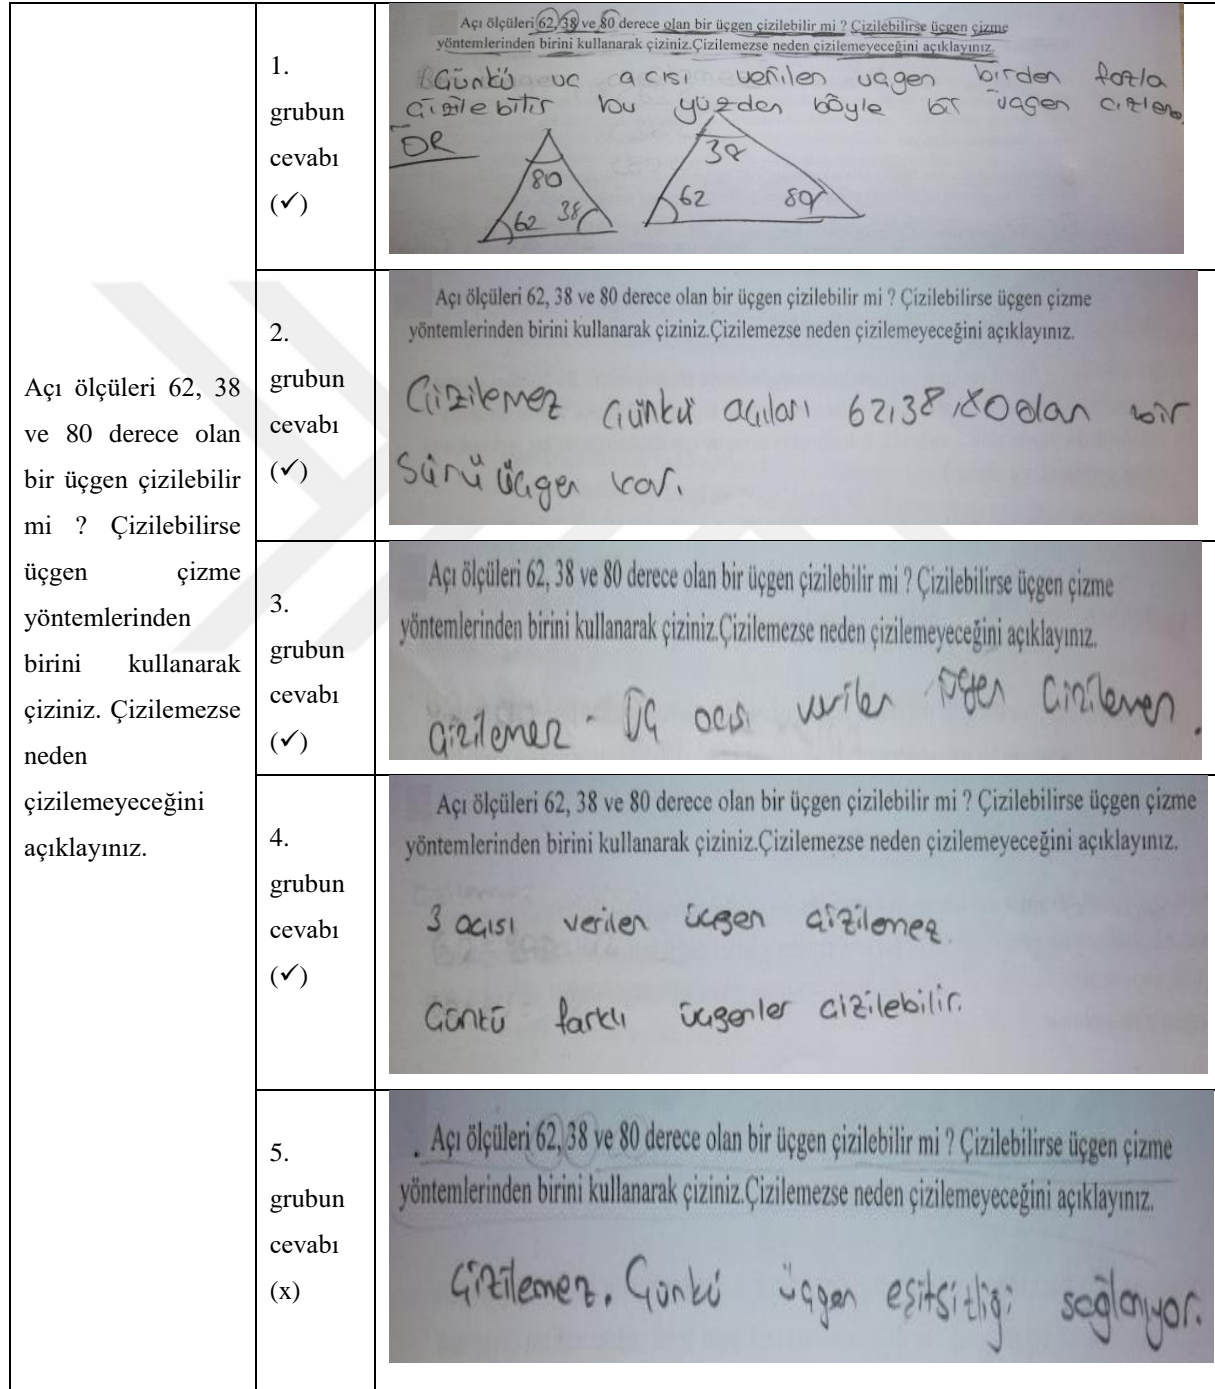 Açı ölçüleri 62, 38
ve 80 derece olan
bir üçgen çizilebilir
mi ? Çizilebilirse
üçgen çizme
yöntemlerinden
birini kullanarak
çiziniz. Çizilemezse
neden
çizilemeyeceğini
açıklayınız.
1.
grubun
cevabı
(✓)
Açı ölçüleri 62, 38 ve 80 derece olan bir üçgen çizilebilir mi ? Çizilebilirse üçgen çizme
yöntemlerinden birini kullanarak çiziniz.Çizilemezse neden çizilemeyeceğini açıklayınız.
Günkü üç acısı verilen üçgen birden fazla
çizilebilir bu yüzden böyle bir üçgen
ÖR
80
62 38
38
62 80
2.
grubun
cevabı
(✓)
Açı ölçüleri 62, 38 ve 80 derece olan bir üçgen çizilebilir mi ? Çizilebilirse üçgen çizme
yöntemlerinden birini kullanarak çiziniz.Çizilemezse neden çizilemeyeceğini açıklayınız.
Çizilemez Günkü açıları 62,38,80 olan bir
sürü üçgen var.
3.
grubun
cevabı
(✓)
Açı ölçüleri 62, 38 ve 80 derece olan bir üçgen çizilebilir mi ? Çizilebilirse üçgen çizme
yöntemlerinden birini kullanarak çiziniz.Çizilemezse neden çizilemeyeceğini açıklayınız.
Çizilemez. Üç acısı verilen üçgen
4.
grubun
cevabı
(✓)
Açı ölçüleri 62, 38 ve 80 derece olan bir üçgen çizilebilir mi ? Çizilebilirse üçgen çizme
yöntemlerinden birini kullanarak çiziniz.Çizilemezse neden çizilemeyeceğini açıklayınız.
3 açısı verilen üçgen çizilemez.
Günkü farklı üçgenler cizilebilir.
5.
grubun
cevabı
(x)
. Açı ölçüleri 62, 38 ve 80 derece olan bir üçgen çizilebilir mi ? Çizilebilirse üçgen çizme
yöntemlerinden birini kullanarak çiziniz.Çizilemezse neden çizilemeyeceğini açıklayınız.
Çizilemez. Günkü üçgen eşitsizliği sağlanıyor.